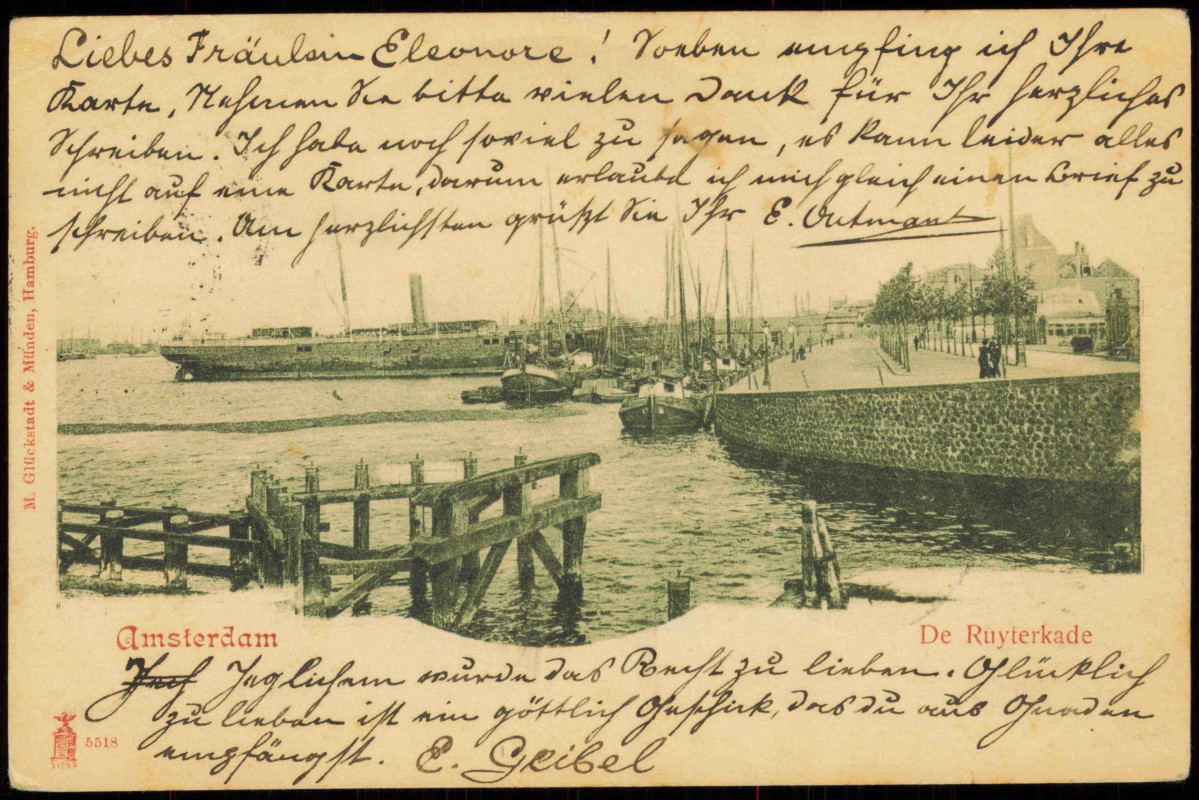 Liebes Fräulein Eleonore! Soeben empfing ich Ihre
Karte, Nehmen Sie bitte vielen Dank für Ihr herzliches
Schreiben. Ich habe noch soviel zu sagen, es kann leider alles
nicht auf eine Karte, darum erlaube ich mich gleich einen Brief zu
schreiben. Am herzlichsten grüßt Sie Ihr E.
M. Glückstadt & Münden, Hamburg.
Amsterdam
De Ruyterkade
Jeglichem wurde das Recht zu lieben. Glücklich
zu lieben ist ein göttlich Geschick, das du aus Gnaden
empfängst. E. Geibel
5518